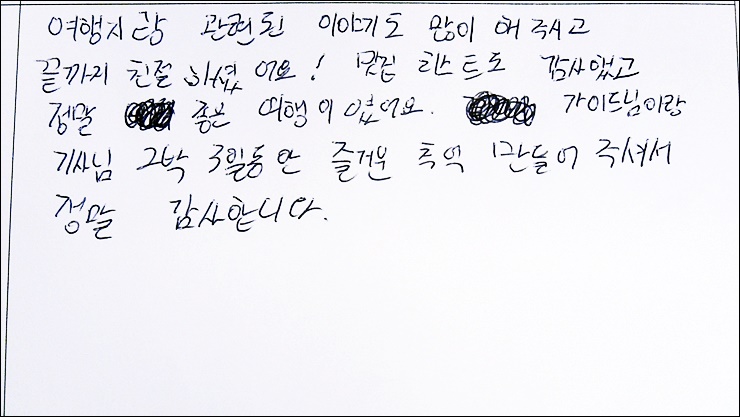 여행지랑 관련된 이야기도 많이 해 주시고
끝까지 친절하셨어요! 맛집 리스트도 감사했고
정말 좋은 여행이였어요. 가이드님이랑
기사님 2박 3일동안 즐거운 추억 만들어 주셔서
정말 감사합니다.